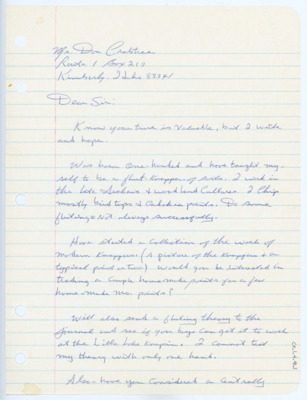 Mr Don Crabtree
Route 1 Box 213
Kimberly, Idaho 83341
Dear Sir:
Know your time is valuable, but I write
and hope.
Was born One-handed and have taught my-
self to be a flint Knapper of sorts. I work in
the late Archaic & woodland Cultures. I Chip
mostly bird tips & Cahokia points. Do some
fluting & Not always successfully.
Have started a Collection of the work of
modern Knappers (A picture of the Knapper & a
typical point or two) would you be interested in
trading a Couple home-made points for a few
home-made Mo. points?
Will also send a fluting theory to the
Journal and see if you boys Can get it to work
at the Little Lake Knapin. I Cannot test
my theory with only one hand.
Also- have you Considered a Centrally